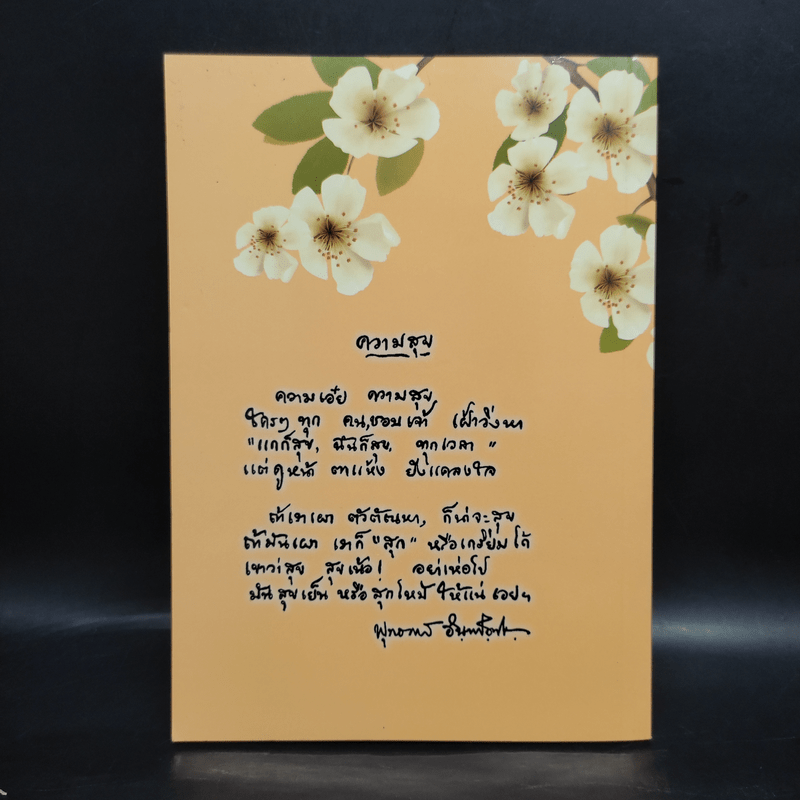 ความสุข
ความเอ๋ย ความสุข
ใครๆ ทุก คน, ชอบเจ้า เฝ้าวิ่งหา
"แกก็สุข, ฉันก็สุข, ทุกเวลา"
แต่ดูหน้า ตาแห้ง ยังแคลงใจ
ถ้าเราเผา ตัวตัณหา, ก็น่าจะสุข
ถ้ามันเผา เราก็ "สุก" หรือเกรียมได้
เขาว่าสุข สุขเน้อ! อย่าเห่อไป
มันสุขเย็น หรือสุกไหม้ ให้แน่ เอยฯ
พุทธทาส อินฺทปญฺโญ